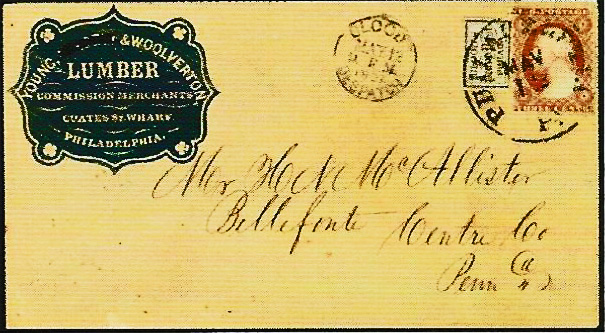 YOUNG & WOOLVERTON
LUMBER
COMMISSION MERCHANTS
COATES ST. WHARF.
PHILADELPHIA.
BLOOD'S
MAY
DESPATCH
MAY
Pa
Mr H N McAllister
Bellefonte Centre Co
Penna